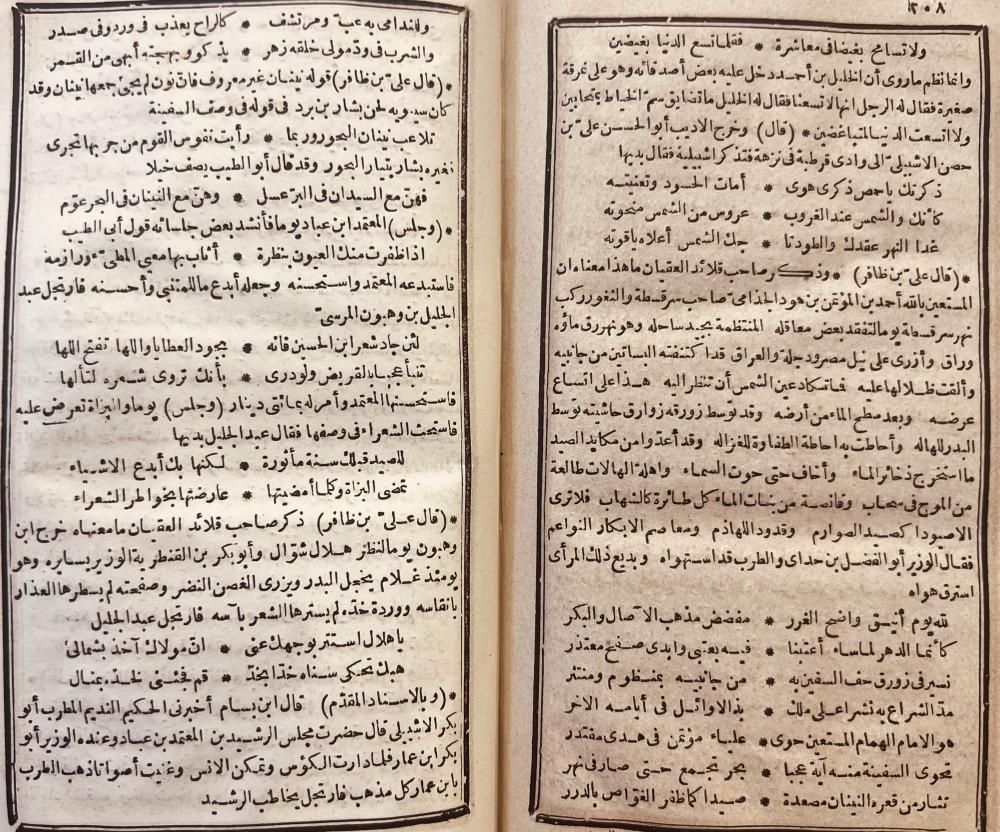 ٢٠٨
ولا تسامح بغيضا فى معاشرة * فقلما تسع الدنيا بغيضين
وانما نظم ما روى أن الخليل بن أحمد دخل عليه بعض أصدقائه وهو على نمرقة
صغيرة فقال له الرجل انها لا تسعنا فقال له الخليل ما تضايق سم الخياط بمتحابين
ولا اتسعت الدنيا لمتباغضين * (قال) وخرج الاديب أبو الحسن على بن
حصن الاشبيلى الى وادى قرطبة فى نزهة فتذكر اشبيلية فقال بديها
ذكرتك يا حمص ذكرى هوى * أمات الحسود وتعنيته
كأنك والشمس عند الغروب * عروس من الشمس منحوته
غدا النهر عقدك والطود تا * جك الشمس أعلاه ياقوته
* (قال على بن ظافر) * وذكر صاحب قلائد العقيان ما هذا معناه ان
المستعين بالله أحمد بن المؤتمن بن هود الجذامى صاحب سرقسطة والثغور ركب
نهر سرقسطة يوما لتفقد بعض معاقله المنتظمة بجيد ساحله وهو نهر رق ماؤه
وراق وأزرى على نيل مصر ودجلة والعراق قد اكتنفته البساتين من جانبيه
وألقت ظلالها عليه فما تكاد عين الشمس أن تنظر اليه هذا على اتساع
عرضه وبعد سطح الماء من أرضه وقد توسط زورقه زوارق حاشيته توسط
البدر للهاله وأحاطت به احاطة الطفاوة للغزاله وقد أعدوا من مكايد الصيد
ما استخرج ذخائر الماء وأخاف حتى حوت السماء وأهلة الهالات طالعة
من الموج فى سحاب وقانصة من بنات الماء كل طائرة كالشهاب فلا ترى
الا صيودا كصيد الصوارم وقدود اللهاذم ومعاصم الابكار النواعم
فقال الوزير أبو الفضل بن حداى والطرب قد استهواه وبديع ذلك المرأى
استرق هواه
لله يوم أنيق واضح الغرر * مفضض مذهب الآصال والبكر
كأنما الدهر لما ساء أعتبنا * فيه بعتبى وابدى صفح معتذر
نسير فى زورق حف السفين به * من جانبيه بمنظوم ومنتثر
مد الشراع به نشرا على ملك * بذ الاوائل فى أيامه الاخر
هو الامام الهمام المستعين حوى * علياء مؤتمن فى هدى مقتدر
تحوى السفينة منه آية عجبا * بحر تجمع حتى صار فى نهر
تثار من قعره النينان مصعدة * صيدا كما ظفر الغواص بالدرر
وللندامى به عب ومرتشف * كالراح يعذب فى ورد وفى صدر
والشرب فى ود مولى خلقه زهر * يذكو وبهجته أبهى من القمر
* (قال على بن ظافر) قوله نينان غير معروف فان نون لم يجئ جمعها نينان وقد
كان سيبويه لحن بشار بن برد فى قوله فى وصف السفينة
تلاعب نينان البحور وربما * رأيت نفوس القوم من جريها تجرى
فغيره بشار بتيار البحور وقد قال أبو الطيب يصف خيلا
فهن مع السيدان فى البر عسل * وهن مع النينان فى البحر عوم
* (وجلس) المعتمد ابن عباد يوما فأنشد بعض جلسائه قول أبى الطيب
اذا ظفرت منك العيون بنظرة * أثاب بها معيى المطى ورازمه
فاستبدعه المعتمد واستحسنه وجعله أبدع ما للمتنبى وأحسنه فارتجل عبد
الجليل بن وهبون المرسى
لئن جاد شعر ابن الحسين فانه * بجود العطايا واللها تفتح اللها
تنبأ عجبا بالقريض ولو درى * بأنك تروى شعره لتألها
فاستحسنها المعتمد وأمر له بمائتى دينار (وجلس) يوما والبزاة تعرض عليه
فاستحث الشعراء فى وصفها فقال عبد الجليل بديها
للصيد قبلك سنة مأثورة * لكنها بك أبدع الاشياء
تمضى البزاة وكلما أمضيتها * عارضتها بخواطر الشعراء
* (قال على بن ظافر) ذكر صاحب قلائد العقيان ما معناه خرج ابن
وهبون يوما لنظر هلال شوال وأبو بكر بن القنطرية الوزير يسايره وهو
يومئذ غلام يخجل البدر ويزرى الغصن النضر وصفحته لم يسطرها العذار
بانقاسه ووردة خده لم يسترها الشعر بآسه فارتجل عبد الجليل
يا هلال استتر بوجهك عنى * ان مولاك آخذ بشمالى
هبك تحكى سناه خدا بخد * قم فجئنى لخده بمثال
* (وبالاسناد المقدم) قال ابن بسام أخبرنى الحكيم النديم المطرب أبو
بكر الاشبيلى قال حضرت مجلس الرشيد بن المعتمد بن عباد وعنده الوزير أبو
بكر ابن عمار فلما دارت الكؤس وتمكن الانس وغنيت أصواتا ذهب الطرب
بابن عمار كل مذهب فارتجل يخاطب الرشيد